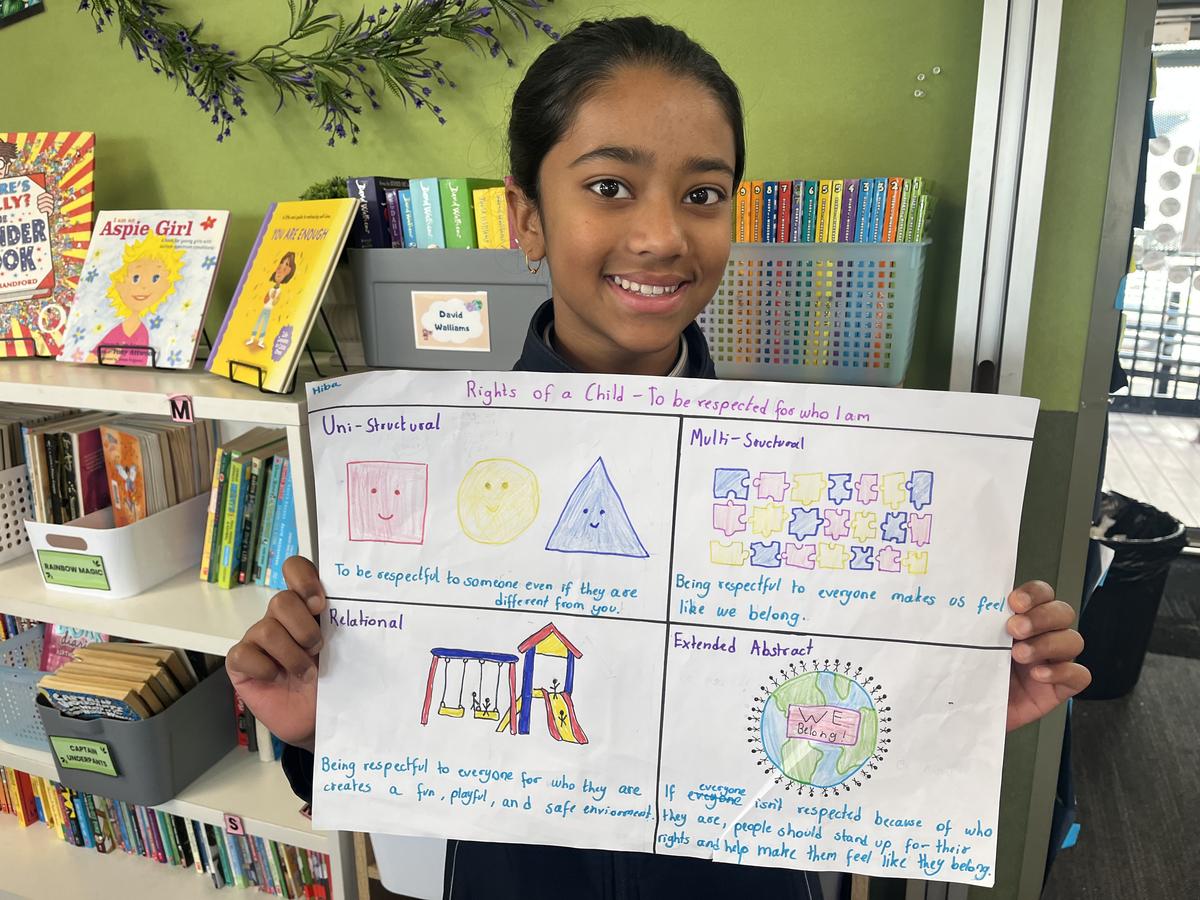 Hiba
Rights of a Child – To be respected for who I am
Uni-Structural
To be respectful to someone even if they are
different from you.
Multi-Structural
Being respectful to everyone makes us feel
like we belong.
Relational
Being respectful to everyone for who they are
creates a fun, playful, and safe enviorment.
Extended Abstract
WE
Belong!
everyone
If everyone isn't respected because of who
they are, people should stand up for their
rights and help make them feel like they belong.
I am an
Aspie Girl
YOU ARE ENOUGH
David
Walliams
David Walliams
M
RAINBOW MAGIC
CAPTAIN
UNDERPANTS
S